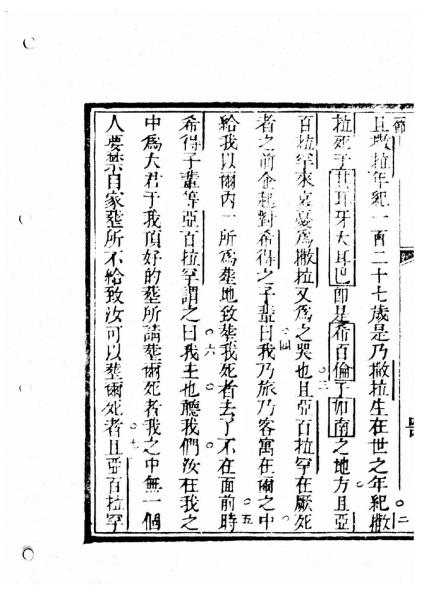 且撒拉年紀一百二十七歲是乃撒拉生在世之年紀撒
拉死于其耳牙大耳巴即是希百倫于如南之地方且亞
百拉罕來哀憂為撒拉又為之哭也且亞百拉罕在厥死
者之前企起對希得之子輩曰我乃旅乃客寓在爾之中
給我以爾內一所為塟地致塟我死者去了不在面前時
希得子輩荅亞百拉罕謂之曰我主也聽我們汝在我之
中為大君于我頂好的塟所請塟爾死者我之中無一個
人要禁自家塟所不給致汝可以塟爾死者且亞百拉罕
節
二
三
四
五
六
七